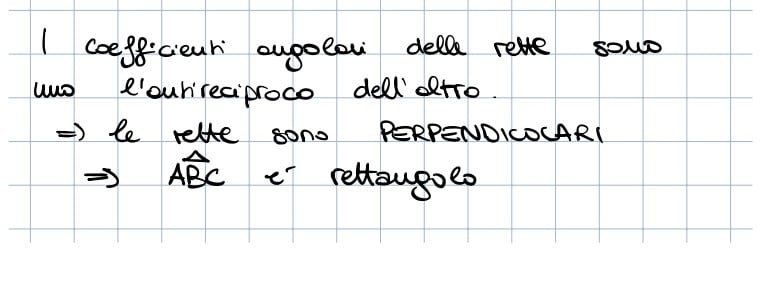 I coefficienti angolari delle rette sono
uno l'antireciproco dell'altro.
=> le rette sono PERPENDICOLARI
=> AB̂C e' rettangolo